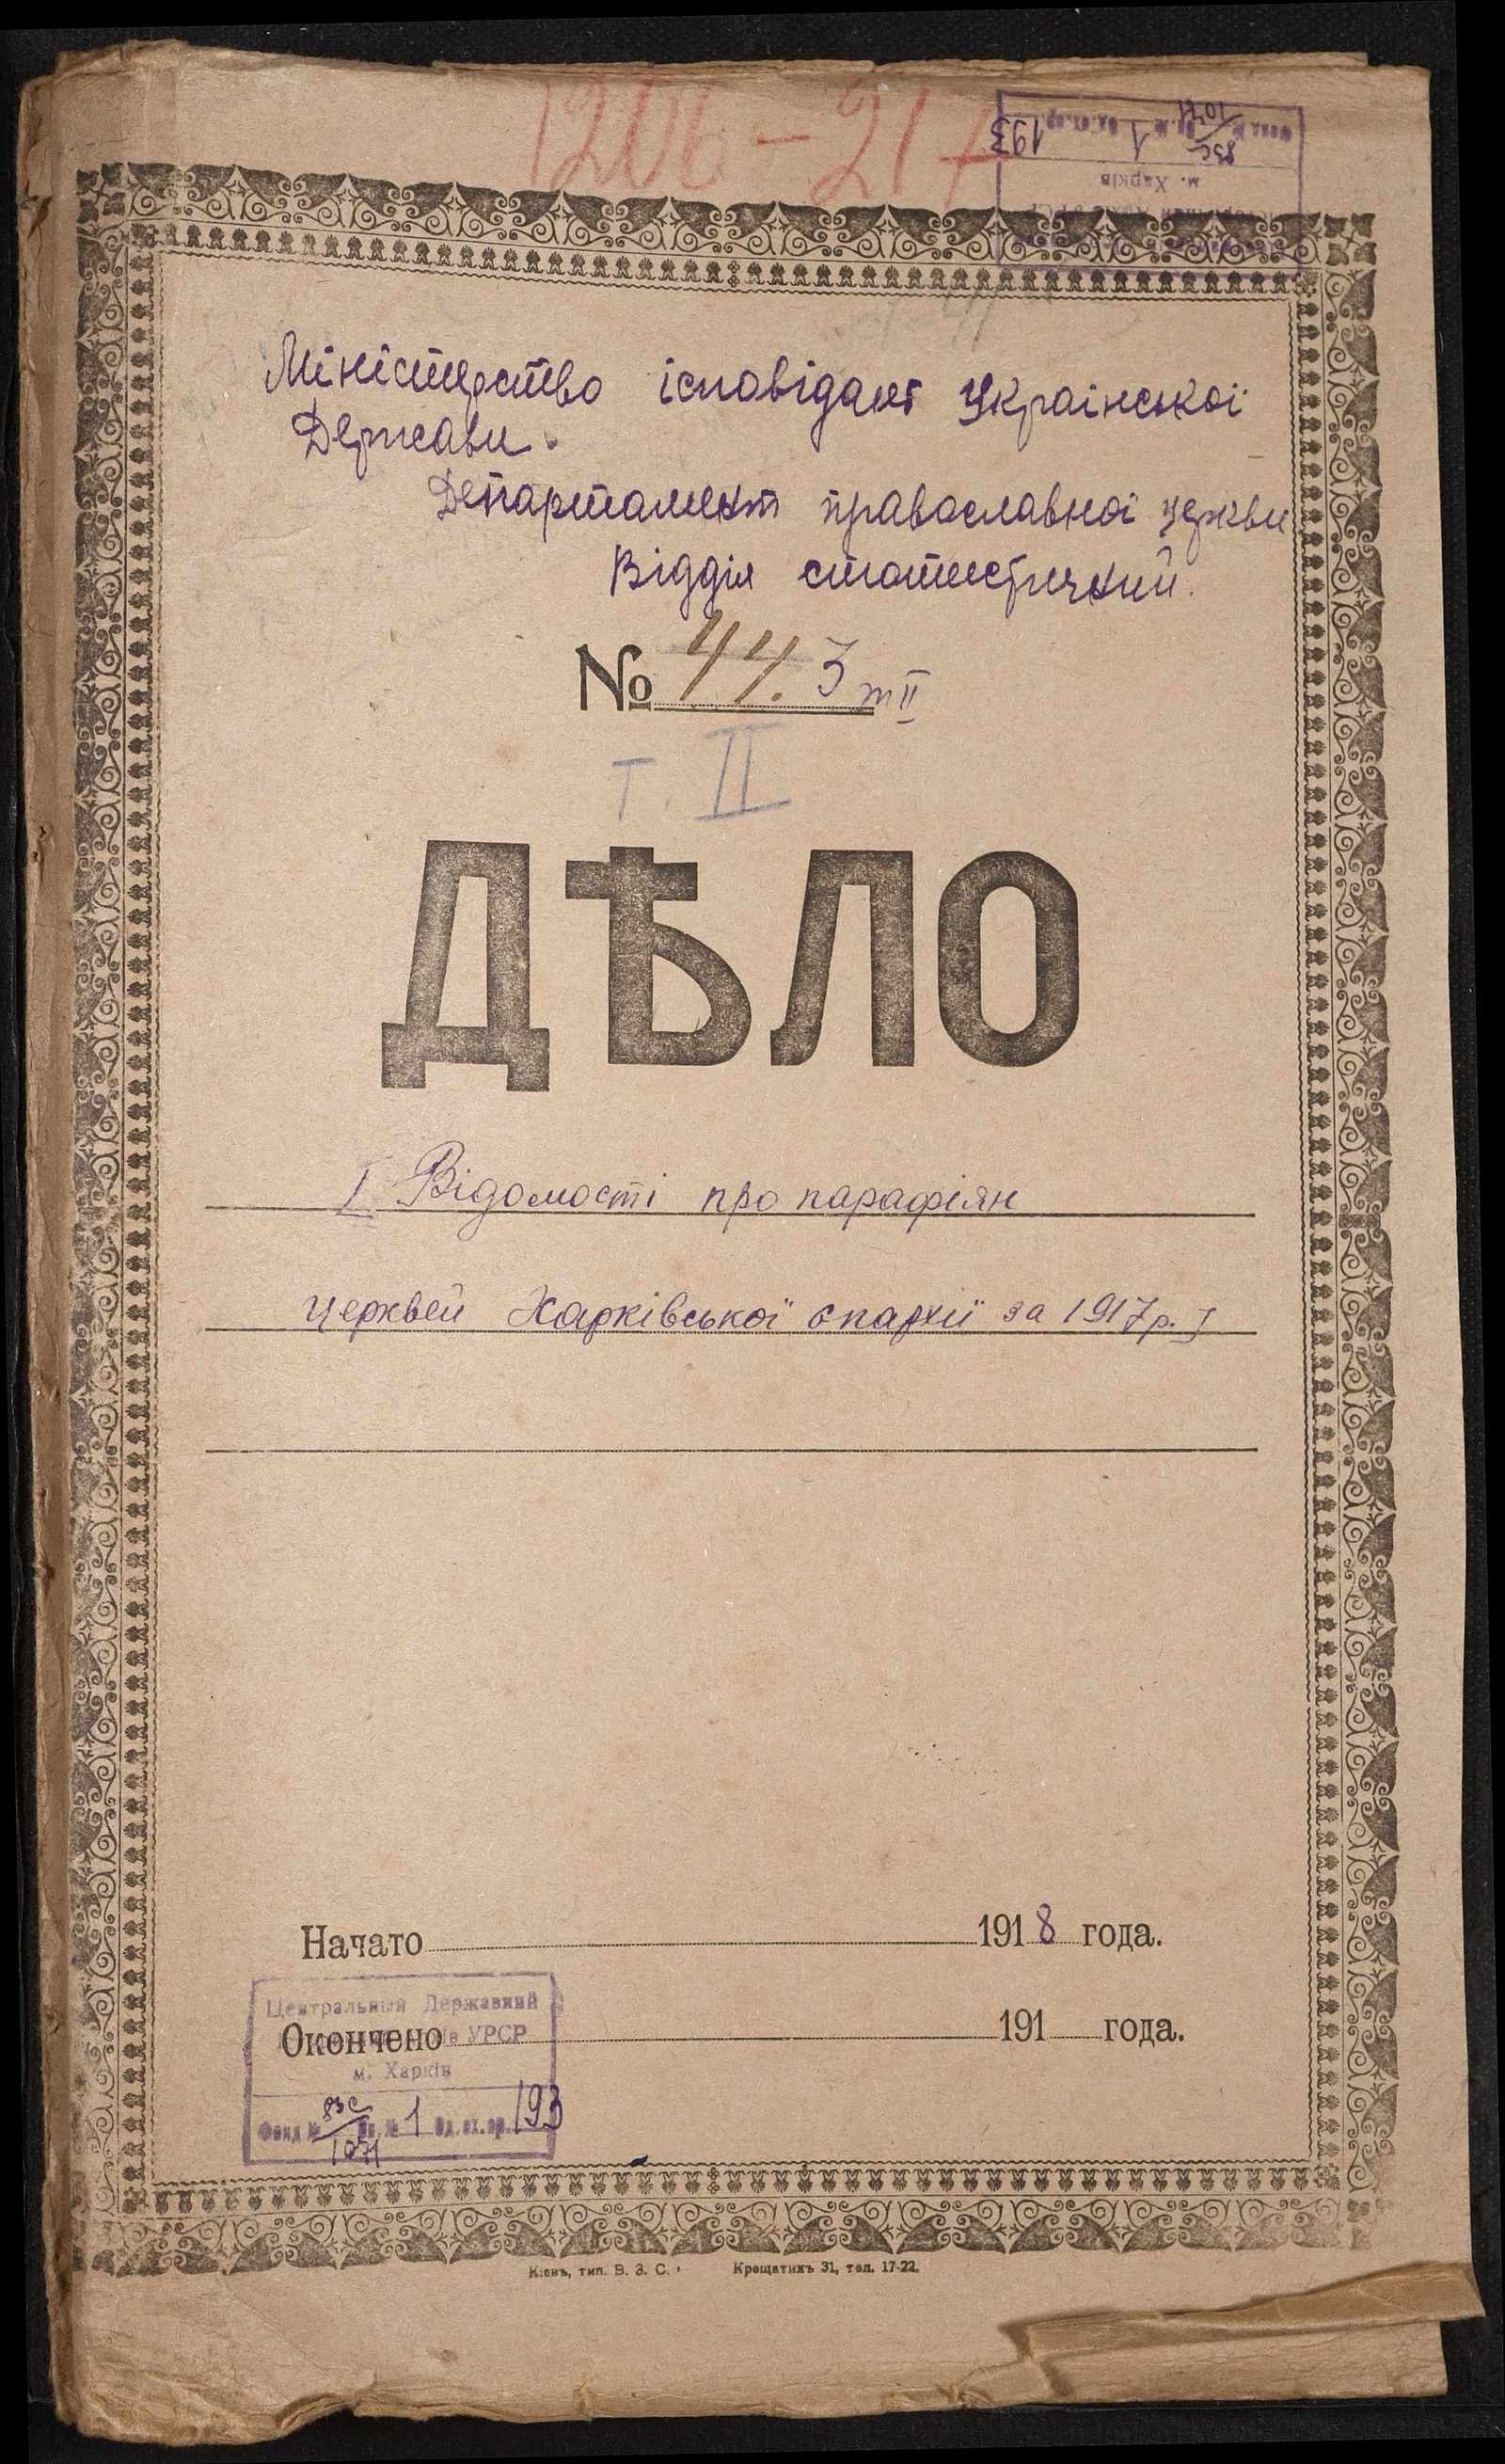 1206-217
Міністерство ісповідань Української
Держави.
Департамент православної церкви
Відділ статистичний.
№ 44. 3 т II
Т. II
ДѢЛО
[ Відомості про парафіян
церквей Харківської єпархії за 1917 р. ]
Начато 1918 года.
Окончено 191 года.
Центральний Державний
УРСР
м. Харків
Фонд № 1071 Оп. № 1 Од. зб. 193
м. Харків
1071 1 193
Кіевъ, тип. В. З. С. Крещатикъ 31, тел. 17-22.